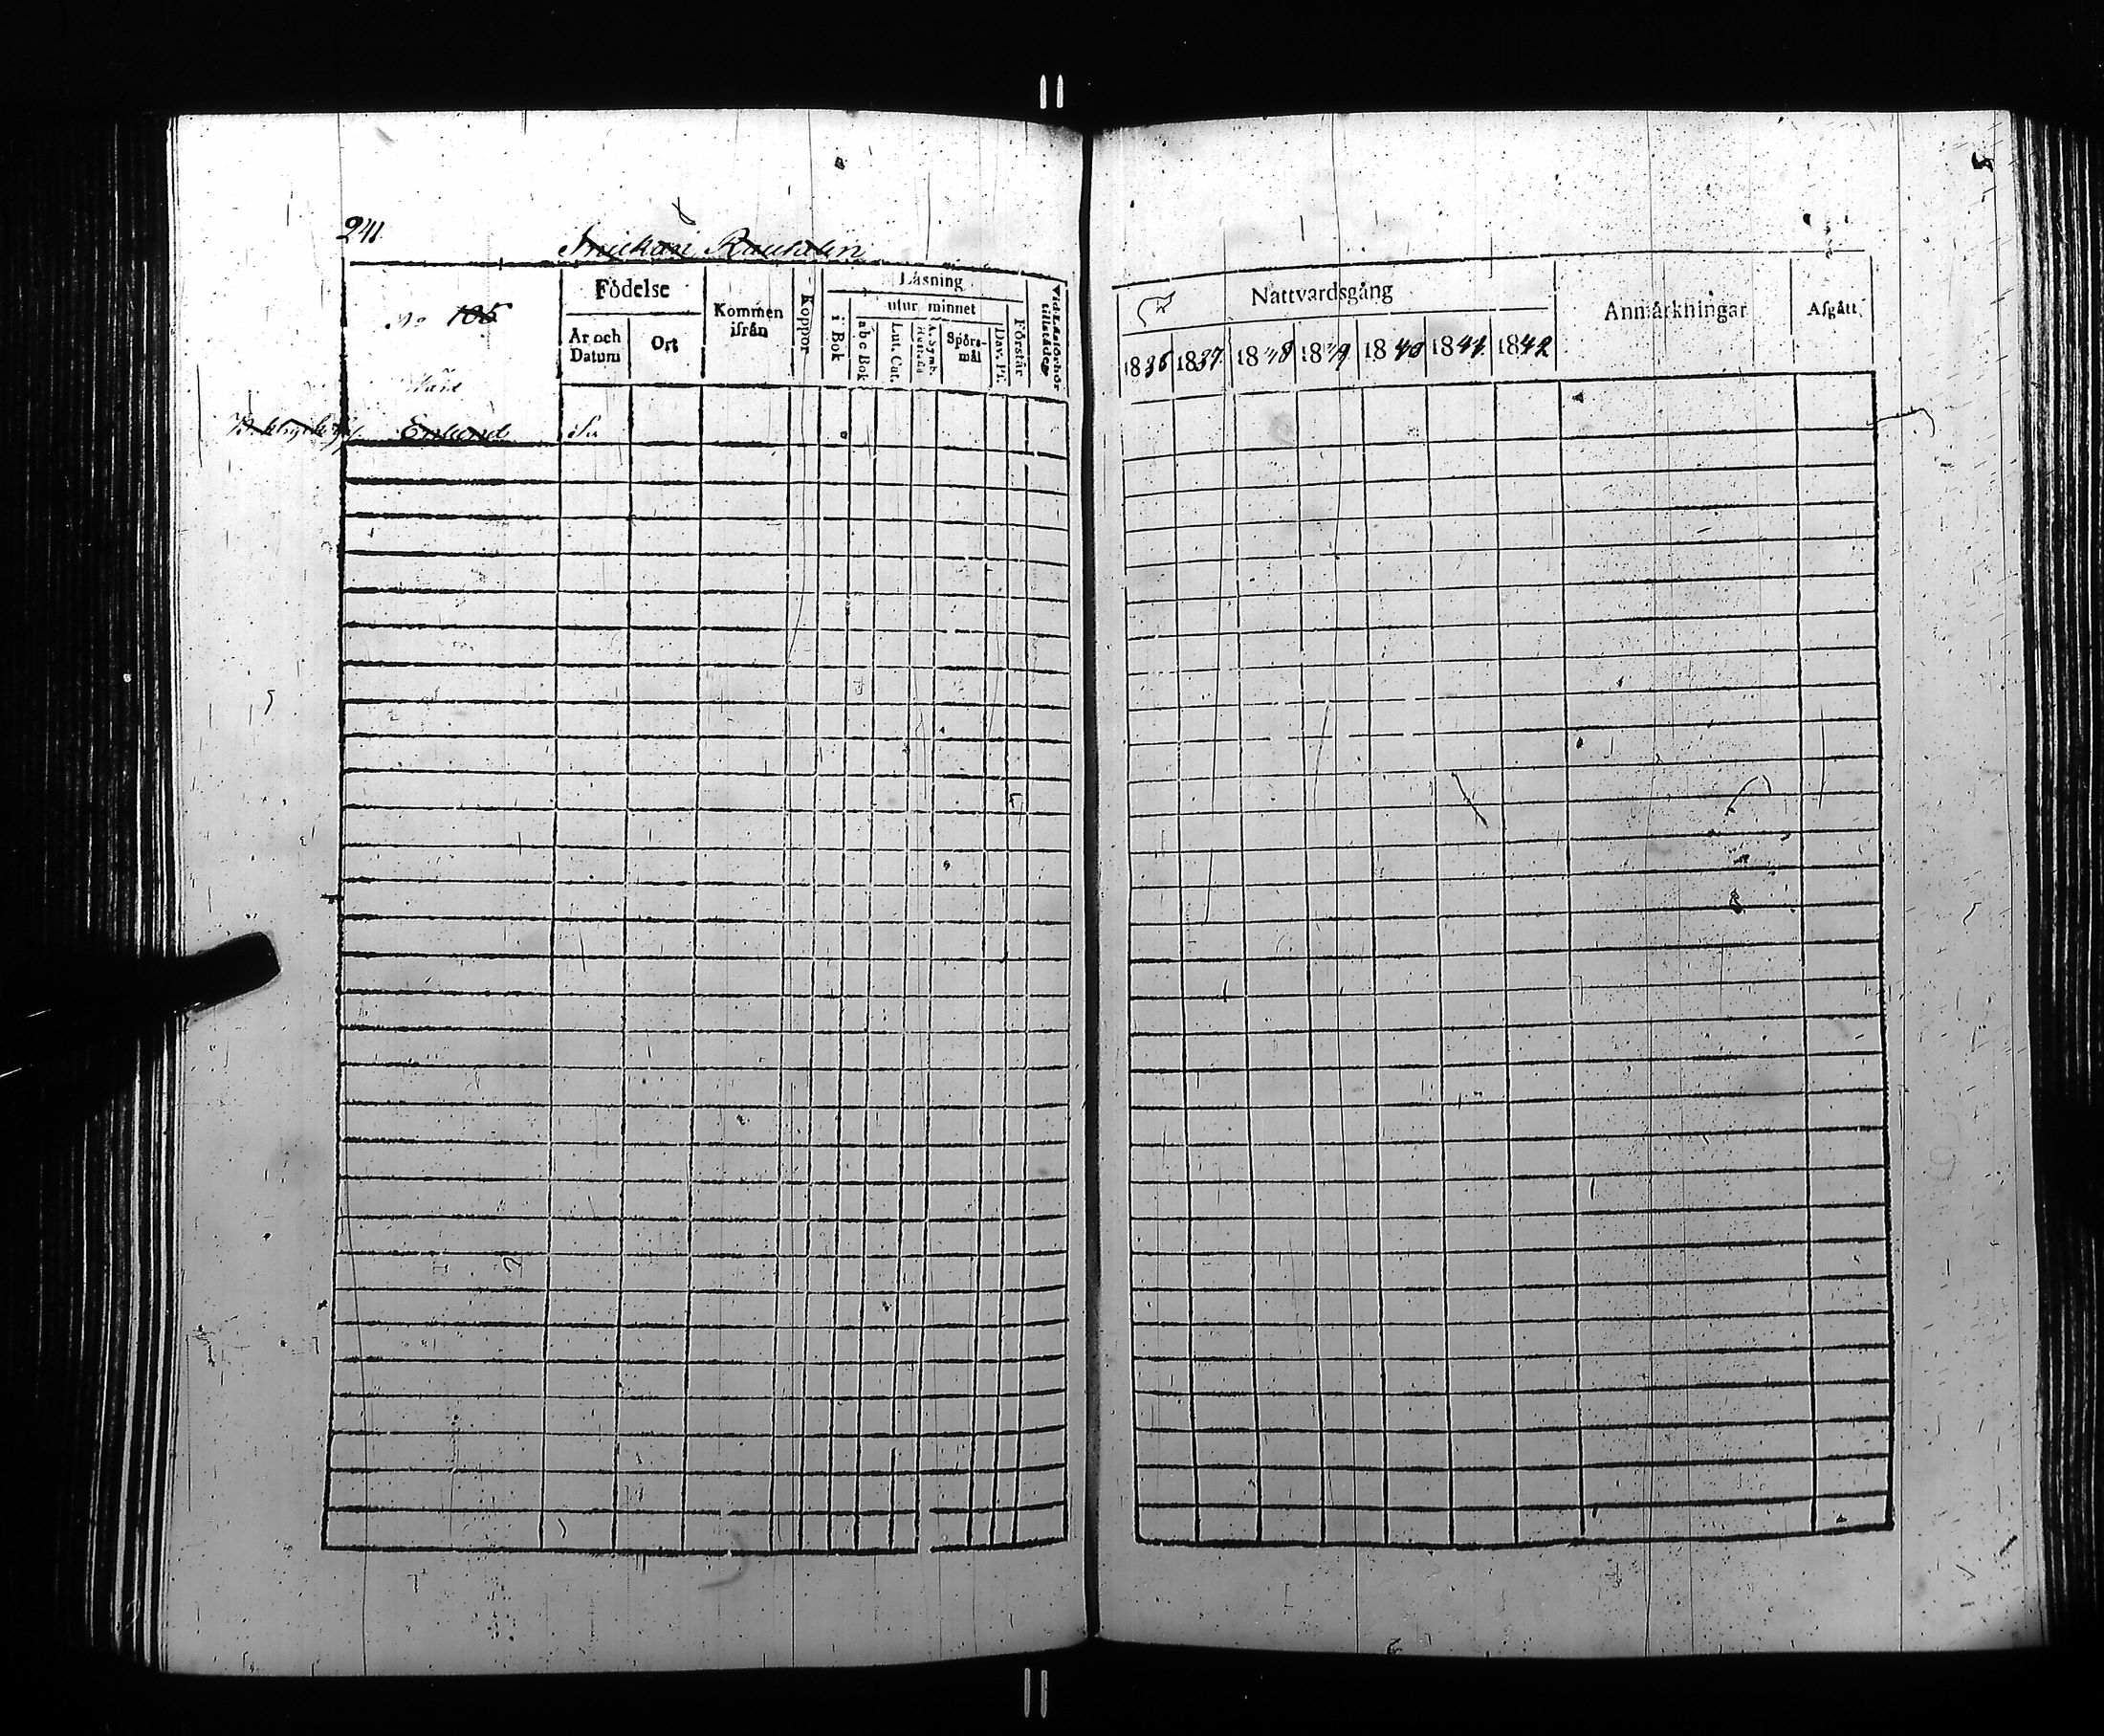 241
No 105
Födelse
År och Datum
Ort
Kommen ifrån
Koppor
Läsning
utur minnet
i Bok
abc Bok
Lut. Cat.
A. Symb. Hustafla
Spörs-mål
Dav. Ps.
Förstår
Vid Läsförhör tillstädes
Nattvardsgång
1836 1837 1838 1839 1840 1841 1842
Anmärkningar
Afgått